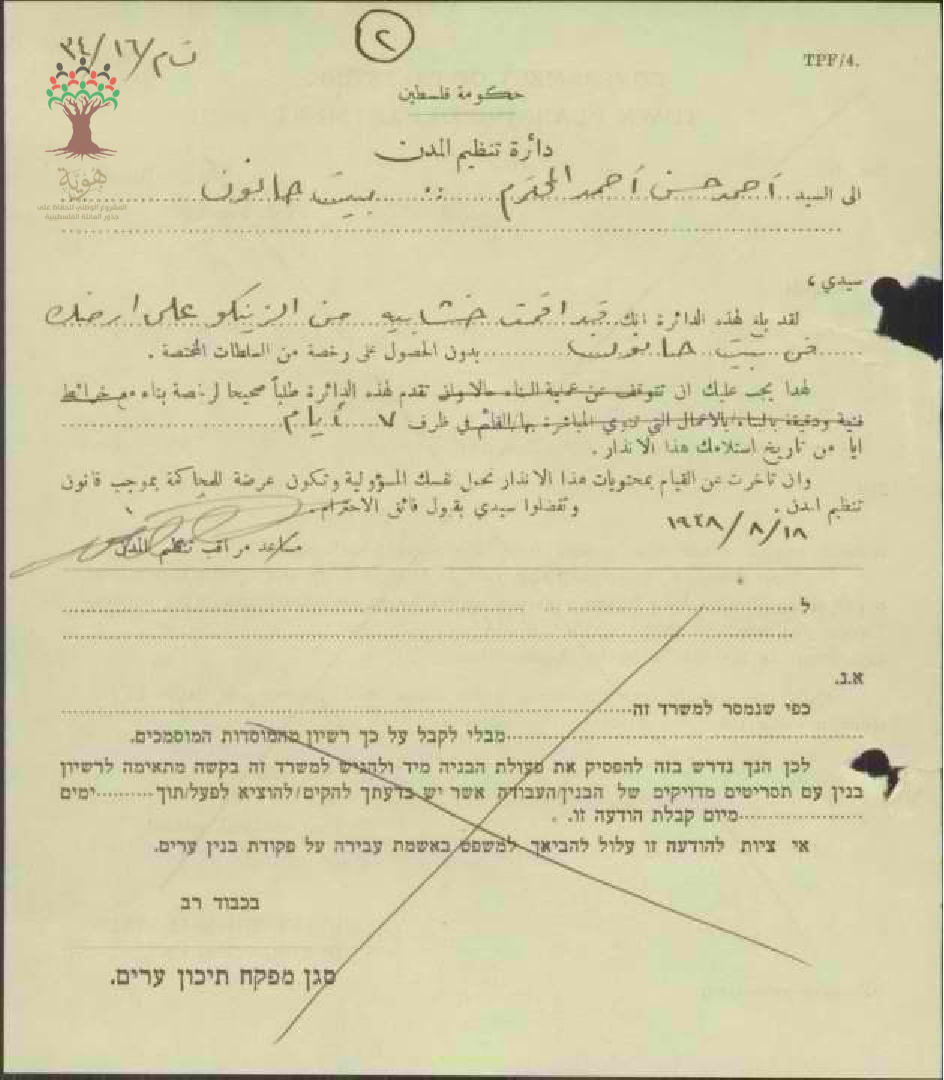 ت م/١٦/٣٤
٢
TPF/4.
حكومة فلسطين
دائرة تنظيم المدن
الى السيد احمد حسن احمد المحترم :: بيت حانون
هوية
المشروع الوطني للحفاظ على
جذور العائلة الفلسطينية
سيدي ،
لقد بلغ لهذه الدائرة انك قد اقمت خشابيه من الزينكو على ارضك
في بيت حانون بدون الحصول على رخصة من السلطات المختصة .
لهذا يجب عليك ان تتوقف عن عملية البناء حالا وان تقدم لهذه الدائرة طلباً صحيحا لرخصة بناء مع خرائط
فنية ودقيقة بالبناء/بالاعمال التي تنوي المباشرة بها/القائم في ظرف ٧ ايام
من تاريخ استلامك هذا الانذار .
وان تاخرت عن القيام بمحتويات هذا الانذار تحمل نفسك المسؤولية وتكون عرضة للمحاكمة بموجب قانون
تنظيم المدن . وتفضلوا سيدي بقبول فائق الاحترام
١٩٤٨/٨/١٨
مساعد مراقب تنظيم المدن
ל
א.נ.
כפי שנמסר למשרד זה
מבלי לקבל על כך רשיון מהמוסדות המוסמכים.
לכן הנך נדרש בזה להפסיק את פעולת הבניה מיד ולהגיש למשרד זה בקשה מתאימה לרשיון
בנין עם תסריטים מדויקים של הבנין/העבודה אשר יש בדעתך להקים/להוציא לפעל/תוך ימים
מיום קבלת הודעה זו.
אי ציות להודעה זו עלול להביאך למשפט באשמת עבירה על פקודת בנין ערים.
בכבוד רב
סגן מפקח תיכון ערים.